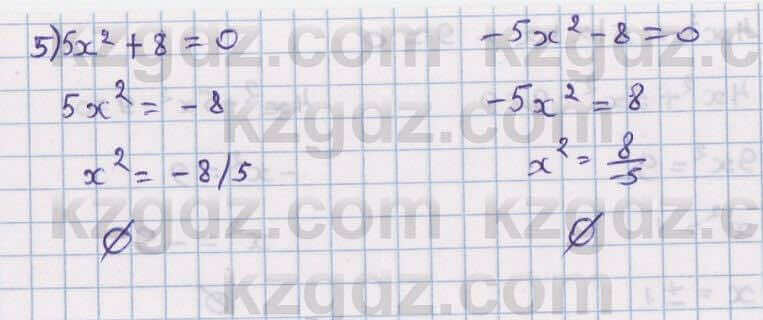 5) 5x² + 8 = 0
5x² = -8
x² = -8/5
∅
-5x² - 8 = 0
-5x² = 8
x² = 8/-5
∅
kzgdz.com
kzgdz.com
kzgdz.com
kzgdz.com
kzgdz.com